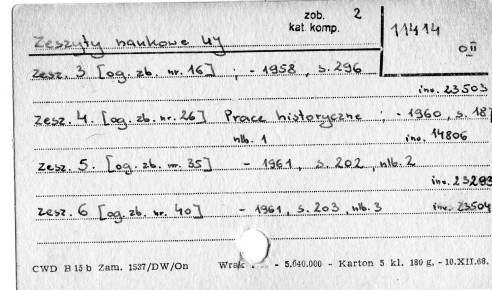 zob. 2
kat. komp.
11414
OII
Zeszyty naukowe UJ
zesz. 3 [og. zb. nr. 16] ; - 1958, s. 296
inw. 23503
zesz. 4. [og. zb. nr. 26] Prace historyczne ; - 1960, s. 187
nlb. 1 inw. 14806
zesz. 5. [og. zb. nr. 35] - 1961, s. 202, nlb. 2
inw. 23203
zesz. 6 [og. zb. nr. 40] - 1961, s. 203, nlb. 3 inw. 23504
CWD B 15 b Zam. 1537/DW/On - 5.040.000 - Karton 5 kl. 180 g, - 10.XII.68.